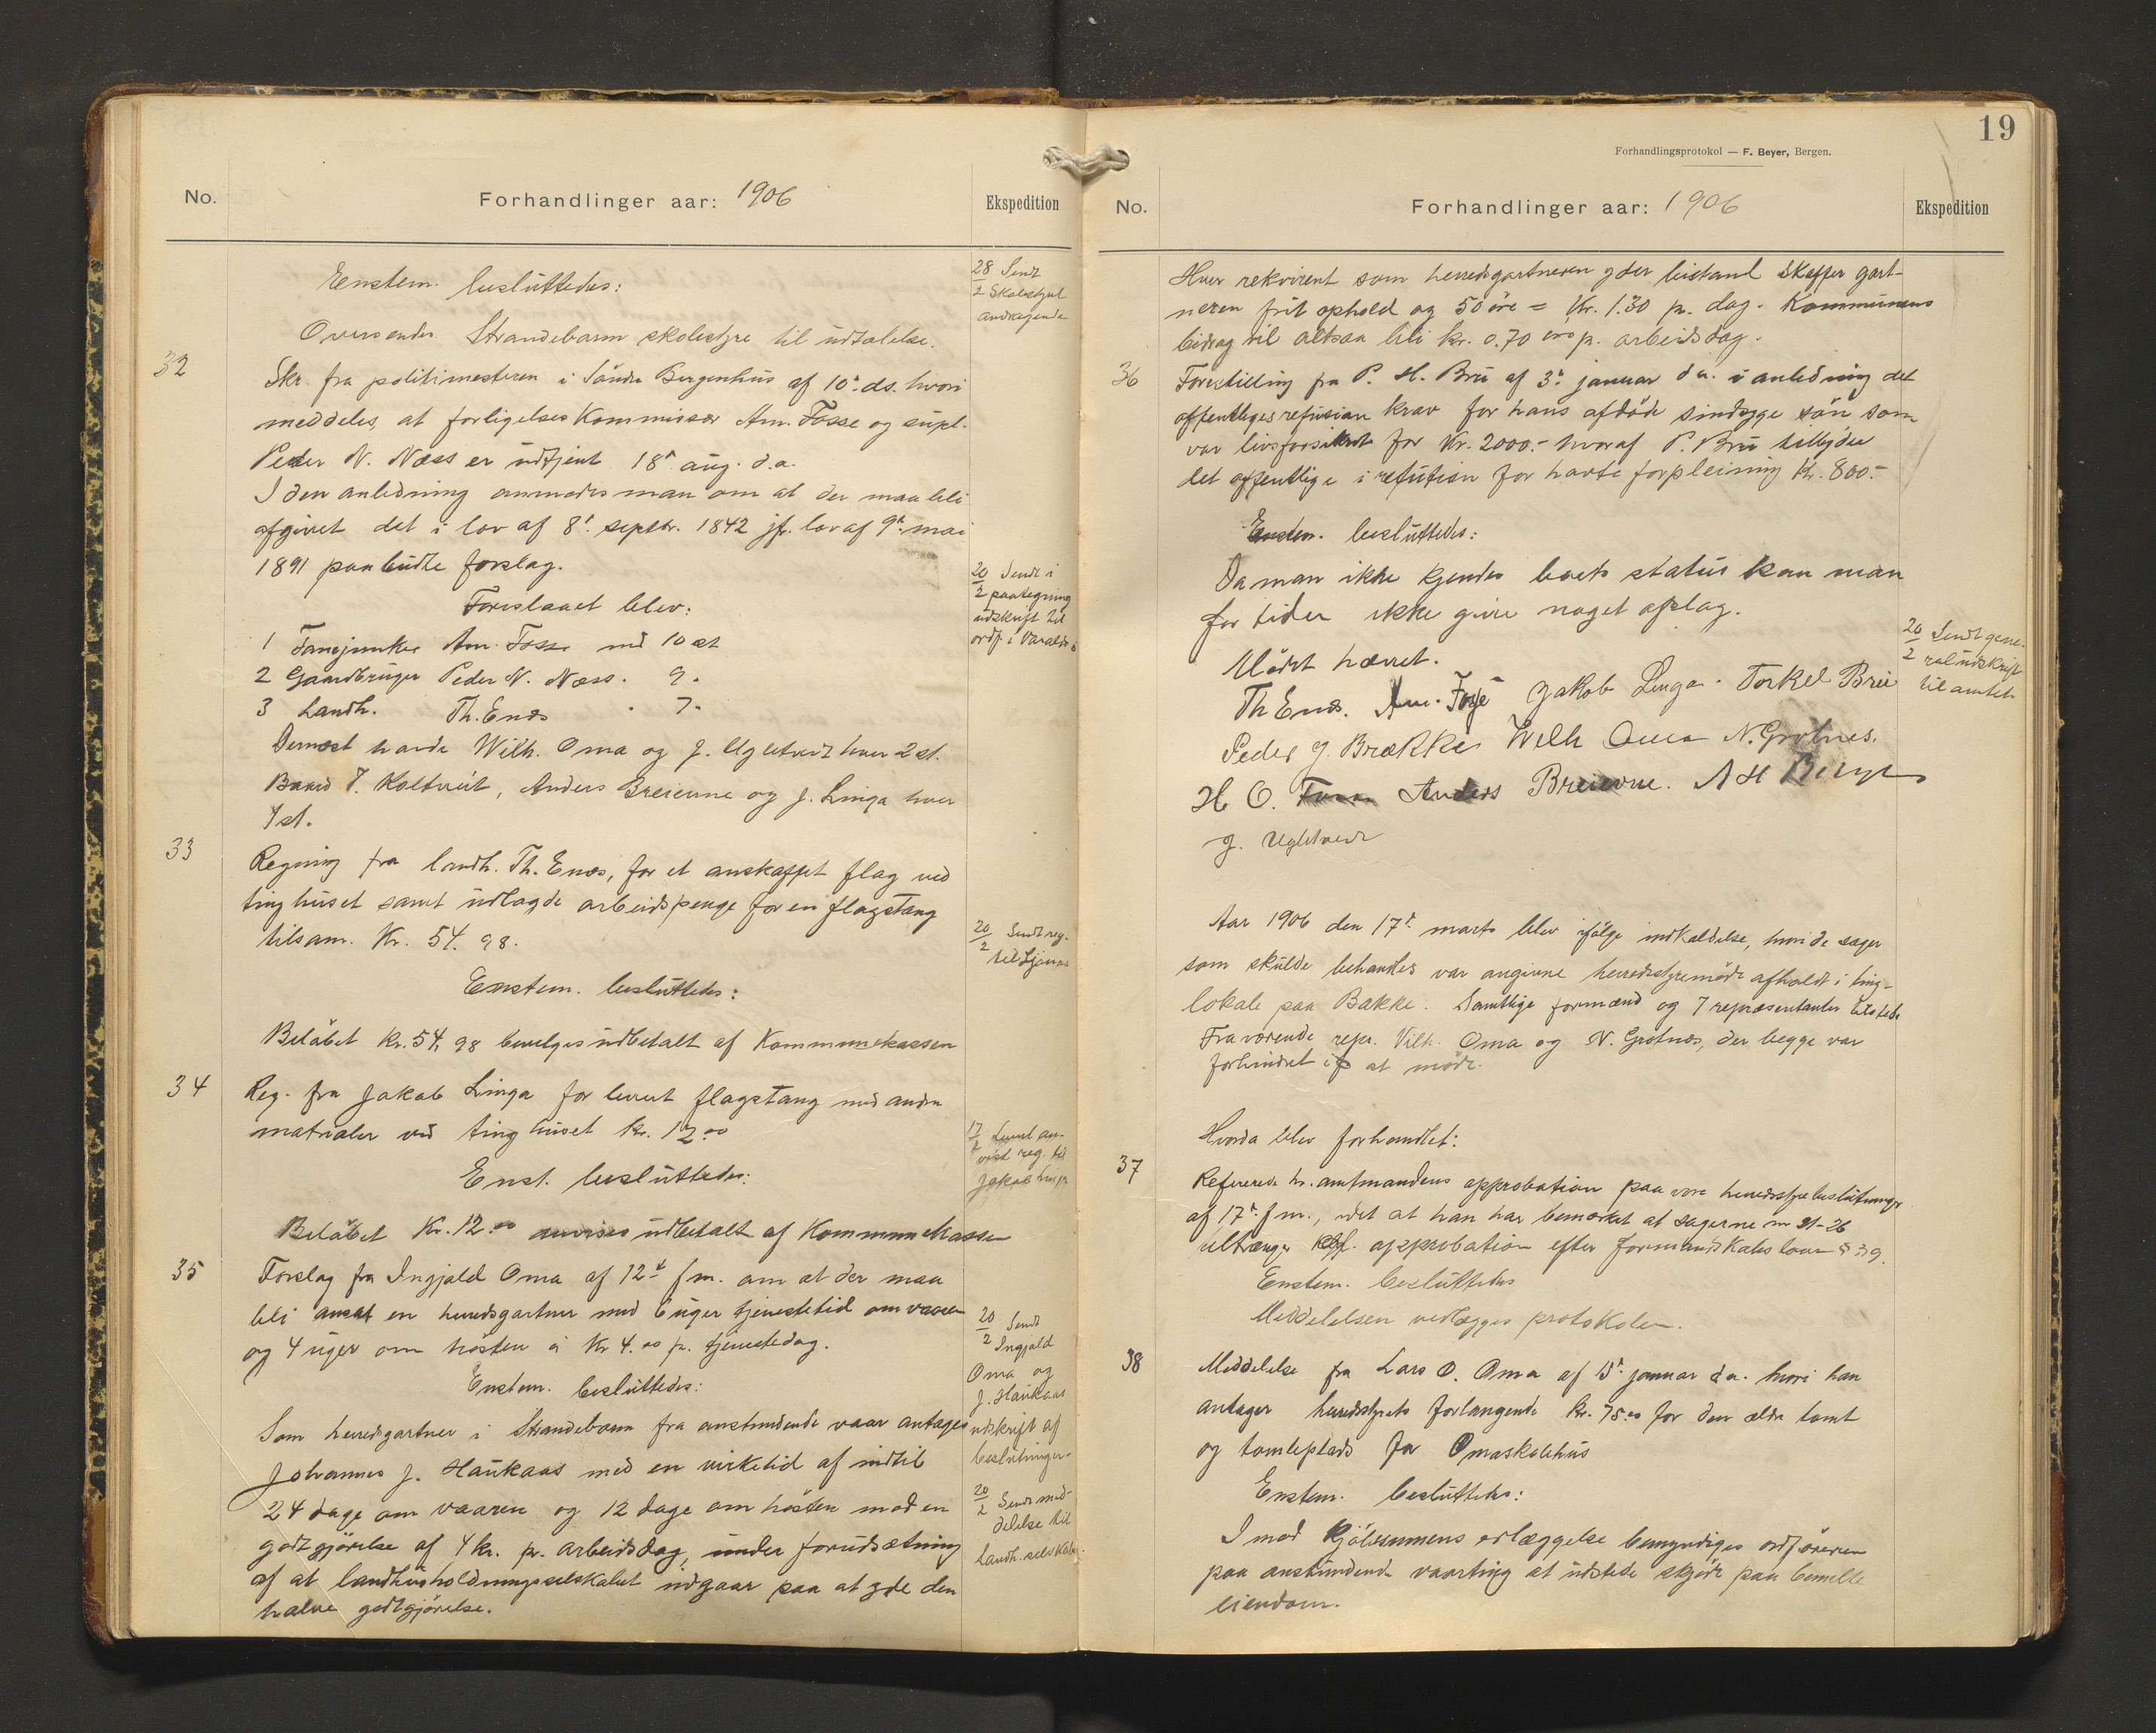 No.
Forhandlinger aar: 1906
Ekspedition
Enstem. besluttedes:
Oversendes Strandebarm skolestyre til udtalelse.
28/2 Sendt
Skolestyret
andragende
32
Skr. fra politimesteren i Söndre Bergenhus af 10de ds. hvori
meddeles, at forligelseskommissær Am. Fosse og supl.
Peder N. Næss er udtjent 18de aug. d.a.
I den anledning anmodes man om at der maa bli
afgivet det i lov af 8de septbr. 1842 jf. lov af 9de mai
1891 paabudte forslag.
Foreslaaet blev:
1 Fanejunker Am. Fosse med 10 st
2 Gaardbruger Peder N. Næss " 9 "
3 Landh. Th. Enæs " 7 "
20/2 Sendt i
paategning
udskrift til
ordf. i Varaldsö
Dernæst havde Wilh. Oma og J. Uglethvedt hver 2 st.
Baard T. Koltveit, Anders Breievne og J. Linga hver
1 st.
33
Regning fra landh. Th. Enæs, for et anskaffet flag ved
tinghuset samt udlagde arbeidspenge for en flagstang
tilsam. Kr. 54.98.
20/2 Sendt reg.
til
Enstem. besluttedes:
Belöbet kr. 54,98 bevilges udbetalt af Kommunekassen
34
Reg. fra Jakob Linga for levert flagstang med andre
matrialer ved tinghuset kr. 12.00
17/ Sendt an-
vist reg. til
Jakob Linga
Enst. besluttedes:
Belöbet Kr. 12.00 anvises udbetalt af Kommunekassen
35
Forslag fra Ingjald Oma af 12te f.m. om at der maa
bli ansat en herredsgartner med 6 uger tjenestetid om vaaren
og 4 uger om hösten á Kr 4.00 pr. tjenestedag.
Enstem. besluttedes:
20/2 Sendt
Ingjald
Oma og
J. Haukaas
udskrift af
beslutningen.
Som herredsgartner i Strandebarm fra anstundende vaar antages
Johannes J. Haukaas med en virketid af indtil
24 dage om vaaren og 12 dage om hösten mod en
godtgjörelse af 4 kr. pr. arbeidsdag, under forudsætning
af at landhusholdningsselskabet indgaar paa at yde den
halve godtgjörelse.
20/2 Sendt med-
delelse til
landh. selskabet.
19
Forhandlingsprotokol — F. Beyer, Bergen.
No.
Forhandlinger aar: 1906
Ekspedition
Hver rekvirent som herredsgartneren yder bistand skaffer gart-
neren frit ophold og 50 öre = Kr. 1.30 pr. dag. Kommunens
bidrag vil altsaa bli kr. 0.70 öre p. arbeidsdag.
36
Forestilling fra P. H. Bru af 3de januar d a. i anledning det
offentliges refusion krav for hans afdöde sindsyge sön som
var livsforsikret for Kr. 2000.- hvoraf P. Bru tilbyder
det offentlige i refution for havte forpleining Kr. 800.-
Enstem. besluttedes:
Da man ikke kjender boets status kan man
for tiden ikke give noget afslag.
Mödet hævet.
20/2 Sendt gene-
raludskrift
til amtet
Th Enæs. Am. Fosse Jakob Linga. Torkel Bru
Peder J. Brække Wilh Oma N. Grötnes.
H O. Anders Breievne. A H
J. Uglethvedt
Aar 1906 den 17de marts blev ifölge indkaldelse, hvori de sager
som skulde behandles var angivne herredsstyremöde afholdt i ting-
lokale paa Bakke. Samtlige formænd og 7 repræsentanter tilstede
Fraværende repr. Vilh. Oma og N. Grötnæs, der begge var
forhindret i at möde.
Hvorda blev forhandlet:
37
Refereredes hr. amtmandens approbation paa vore herredsstyrebeslutninger
af 17de f m., idet at han har bemærket at sagerne nr 21-26
tiltrænger kgl. approbation efter formandskabsloven § 39.
Enstem. besluttedes
Meddelelsen vedlægges protokolen.
38
Meddelelse fra Lars O. Oma af 13de januar d a. hvori han
antager herredsstyrets forlangende kr. 75.00 for den ældre tomt
og tomteplads for Omaskolehus
Enstem. besluttedes:
I mod kjöbesummens erlæggelse bemyndiges ordföreren
paa anstundende vaarting at udstede skjöde paa bemelte
eiendom.